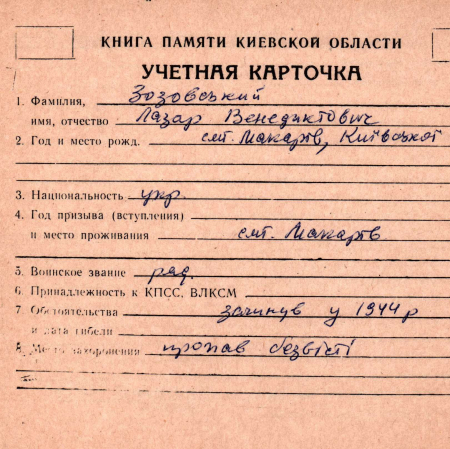 КНИГА ПАМЯТИ КИЕВСКОЙ ОБЛАСТИ
УЧЕТНАЯ КАРТОЧКА
1. Фамилия, Зозовський
имя, отчество Лазар Венедиктович
2. Год и место рожд. смт. Макарів, Київської
3. Национальность укр.
4. Год призыва (вступления)
и место проживания смт. Макарів
5. Воинское звание ряд.
6. Принадлежность к КПСС, ВЛКСМ
7. Обстоятельства загинув у 1944 р
и дата гибели
8. Место захоронения пропав безвісті